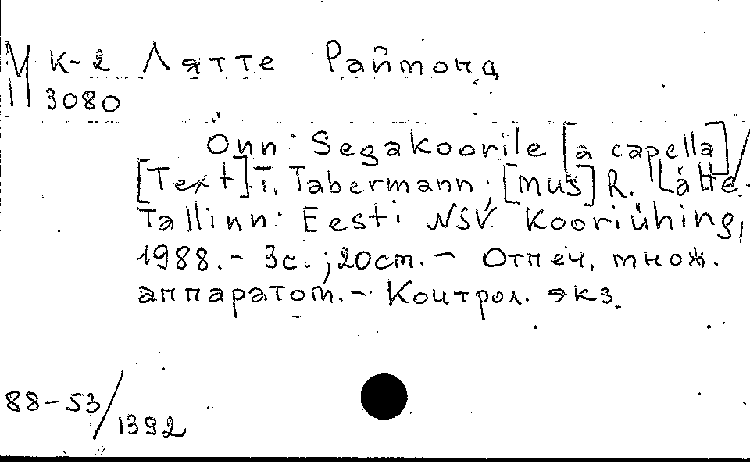 М К-2 Лятте Раймонд
3080
Õnn: Segakoorile [a capella] /
[Text] T. Tabermann; [mus] R. Lätte.
Tallinn: Eesti NSV Kooriühing,
1988.- 3с.; 20cm. - Отпеч. множ.
аппаратом. - Контрол. экз.
88-53/1392